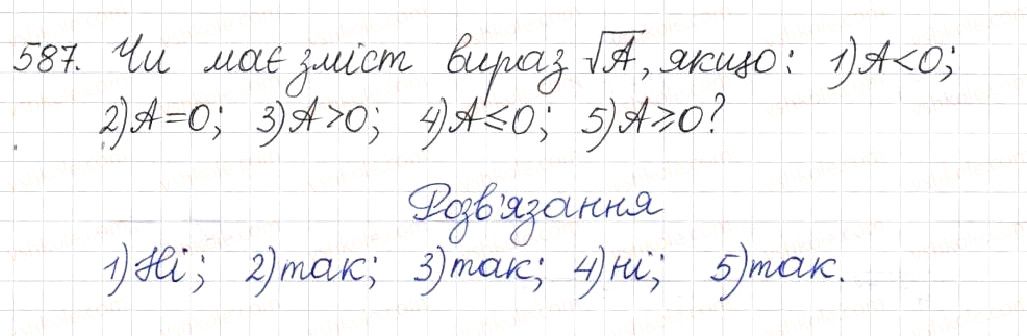 587. Чи має зміст вираз √A, якщо: 1) A<0;
2) A=0; 3) A>0; 4) A≤0; 5) A≥0?
Розв'язання
1) Ні; 2) так; 3) так; 4) ні; 5) так.